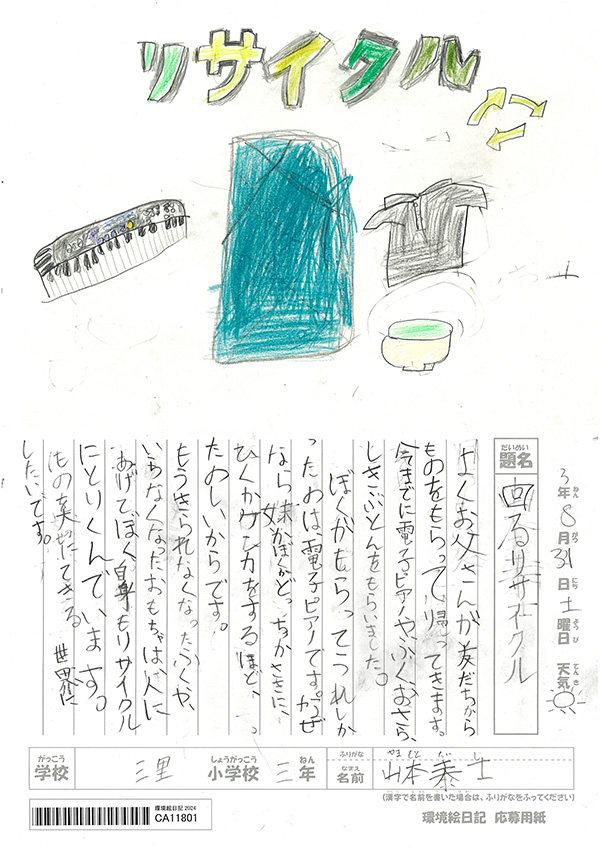 リサイクル
3年8月31日土曜日 天気
ねん がつ にち ようび てんき
だいめい
題名 回るリサイクル
よくお父さんが友だちから
ものをもらって帰ってきます。
今までに電子ピアノやふくおさら、
しきぶとんをもらいました。
ぼくがもらってうれしか
ったのは、電子ピアノです。なぜ
なら妹かぼくがどっちかさきに、
ひくかケンカをするほど、
たのしいからです。
もうきられなくなったふくや、
いらなくなったおもちゃは人に
あげてぼく自身もリサイクル
にとりくんでいます。
ものを にできる 世界に
したいです。
がっこう しょうがっこう ねん ふりがな やま もと
学校 三里 小学校 三年 なまえ 名前 山本泰士
(漢字で名前を書いた場合は、ふりがなをふってください)
環境絵日記 2024
CA11801
環境絵日記 応募用紙